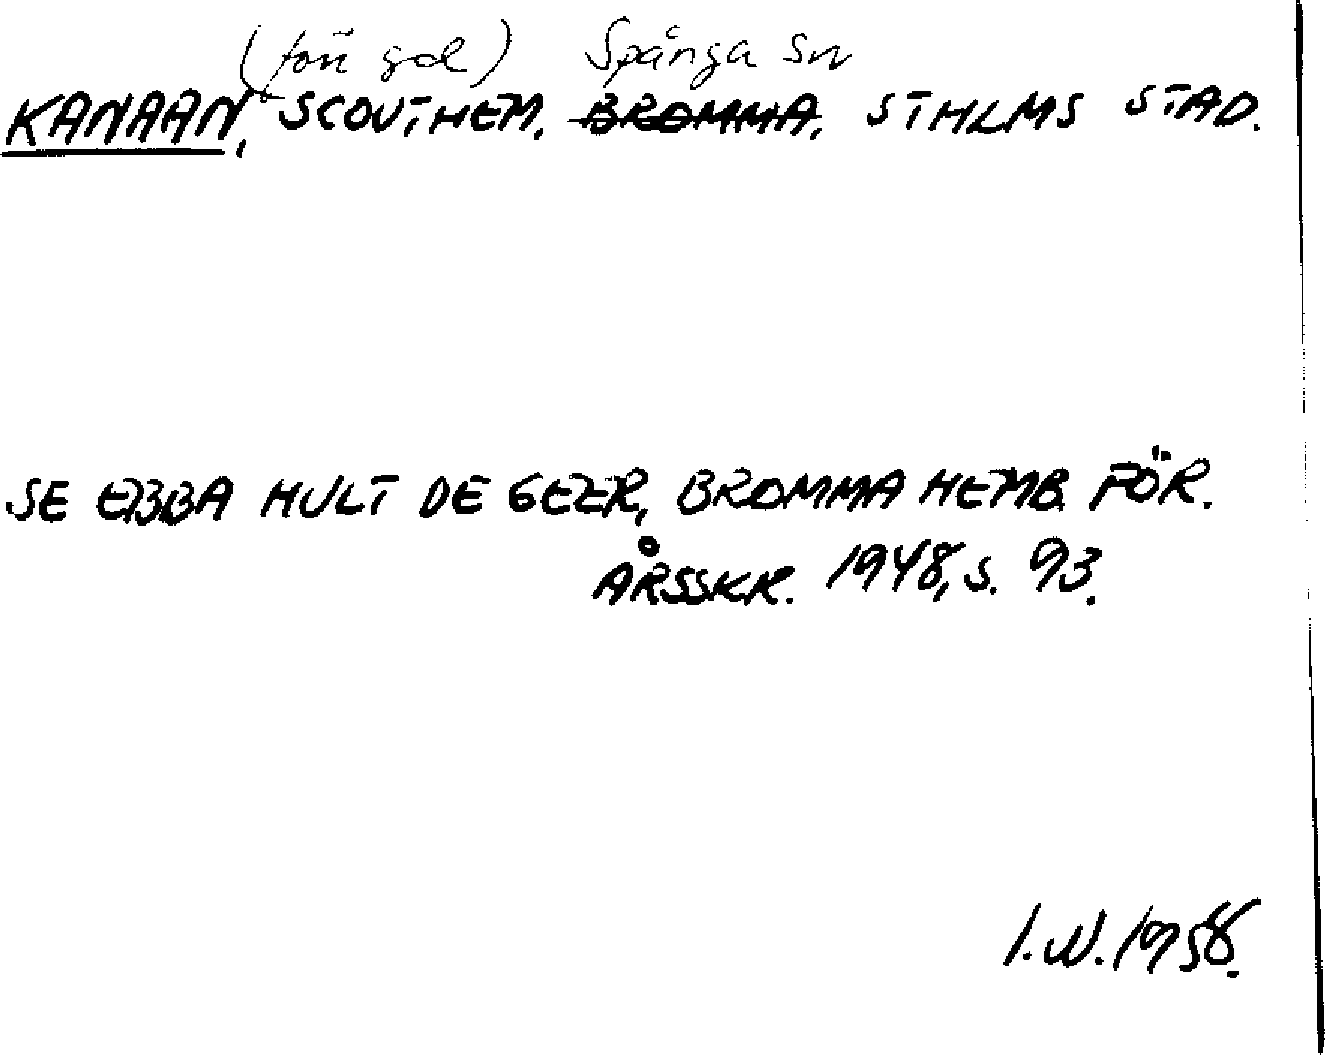 (förr gd) Spånga sn
KANAAN, SCOUTHEM, BROMMA, STHLMS STAD.
SE EBBA HULT DE GEER, BROMMA HEMB. FÖR.
ÅRSSKR. 1948, S. 93.
I.W. 1958.